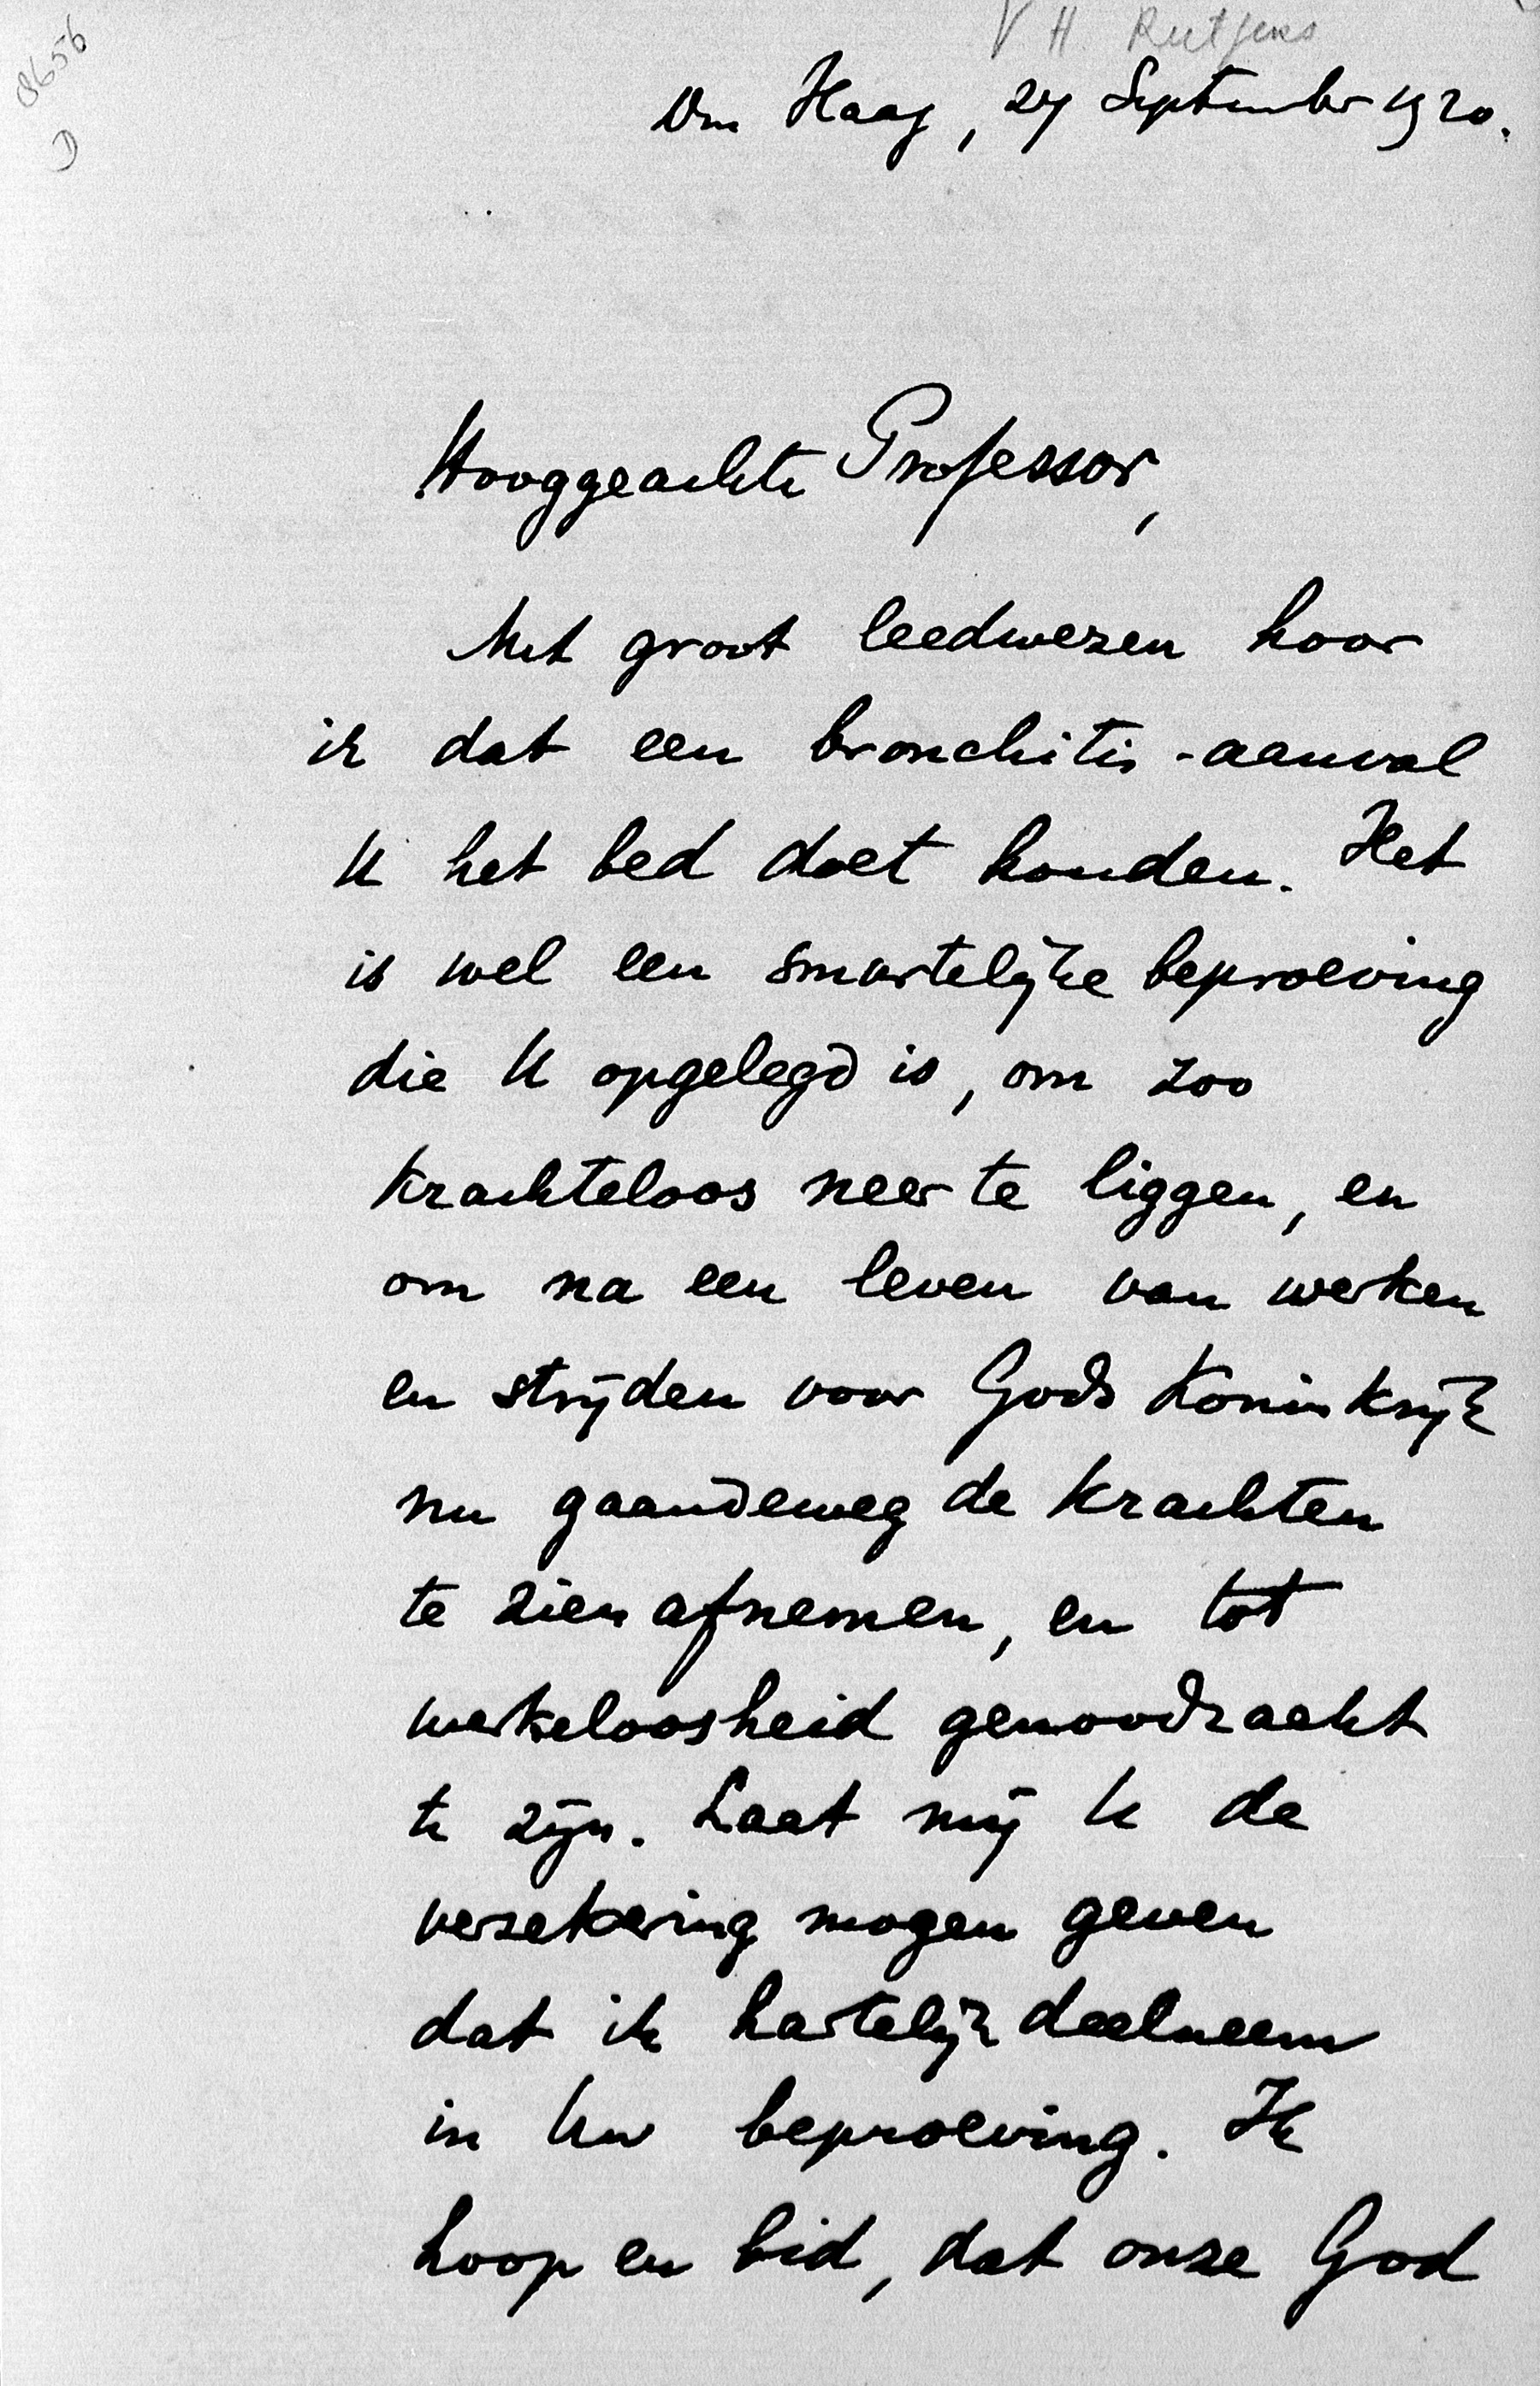 8656
D
V H. Rutgers
Den Haag, 27 September 1920.
Hooggeachte Professor,
Met groot leedwezen hoor
ik dat een bronchitis-aanval
U het bed doet houden. Het
is wel een smartelijke beproeving
die U opgelegd is, om zoo
krachteloos neer te liggen, en
om na een leven van werken
en strijden voor Gods Koninkrijk
nu gaandeweg de krachten
te zien afnemen, en tot
werkeloosheid genoodzaakt
te zijn. Laat mij U de
verzekering mogen geven
dat ik hartelijk deelneem
in Uw beproeving. Ik
hoop en bid, dat onze God